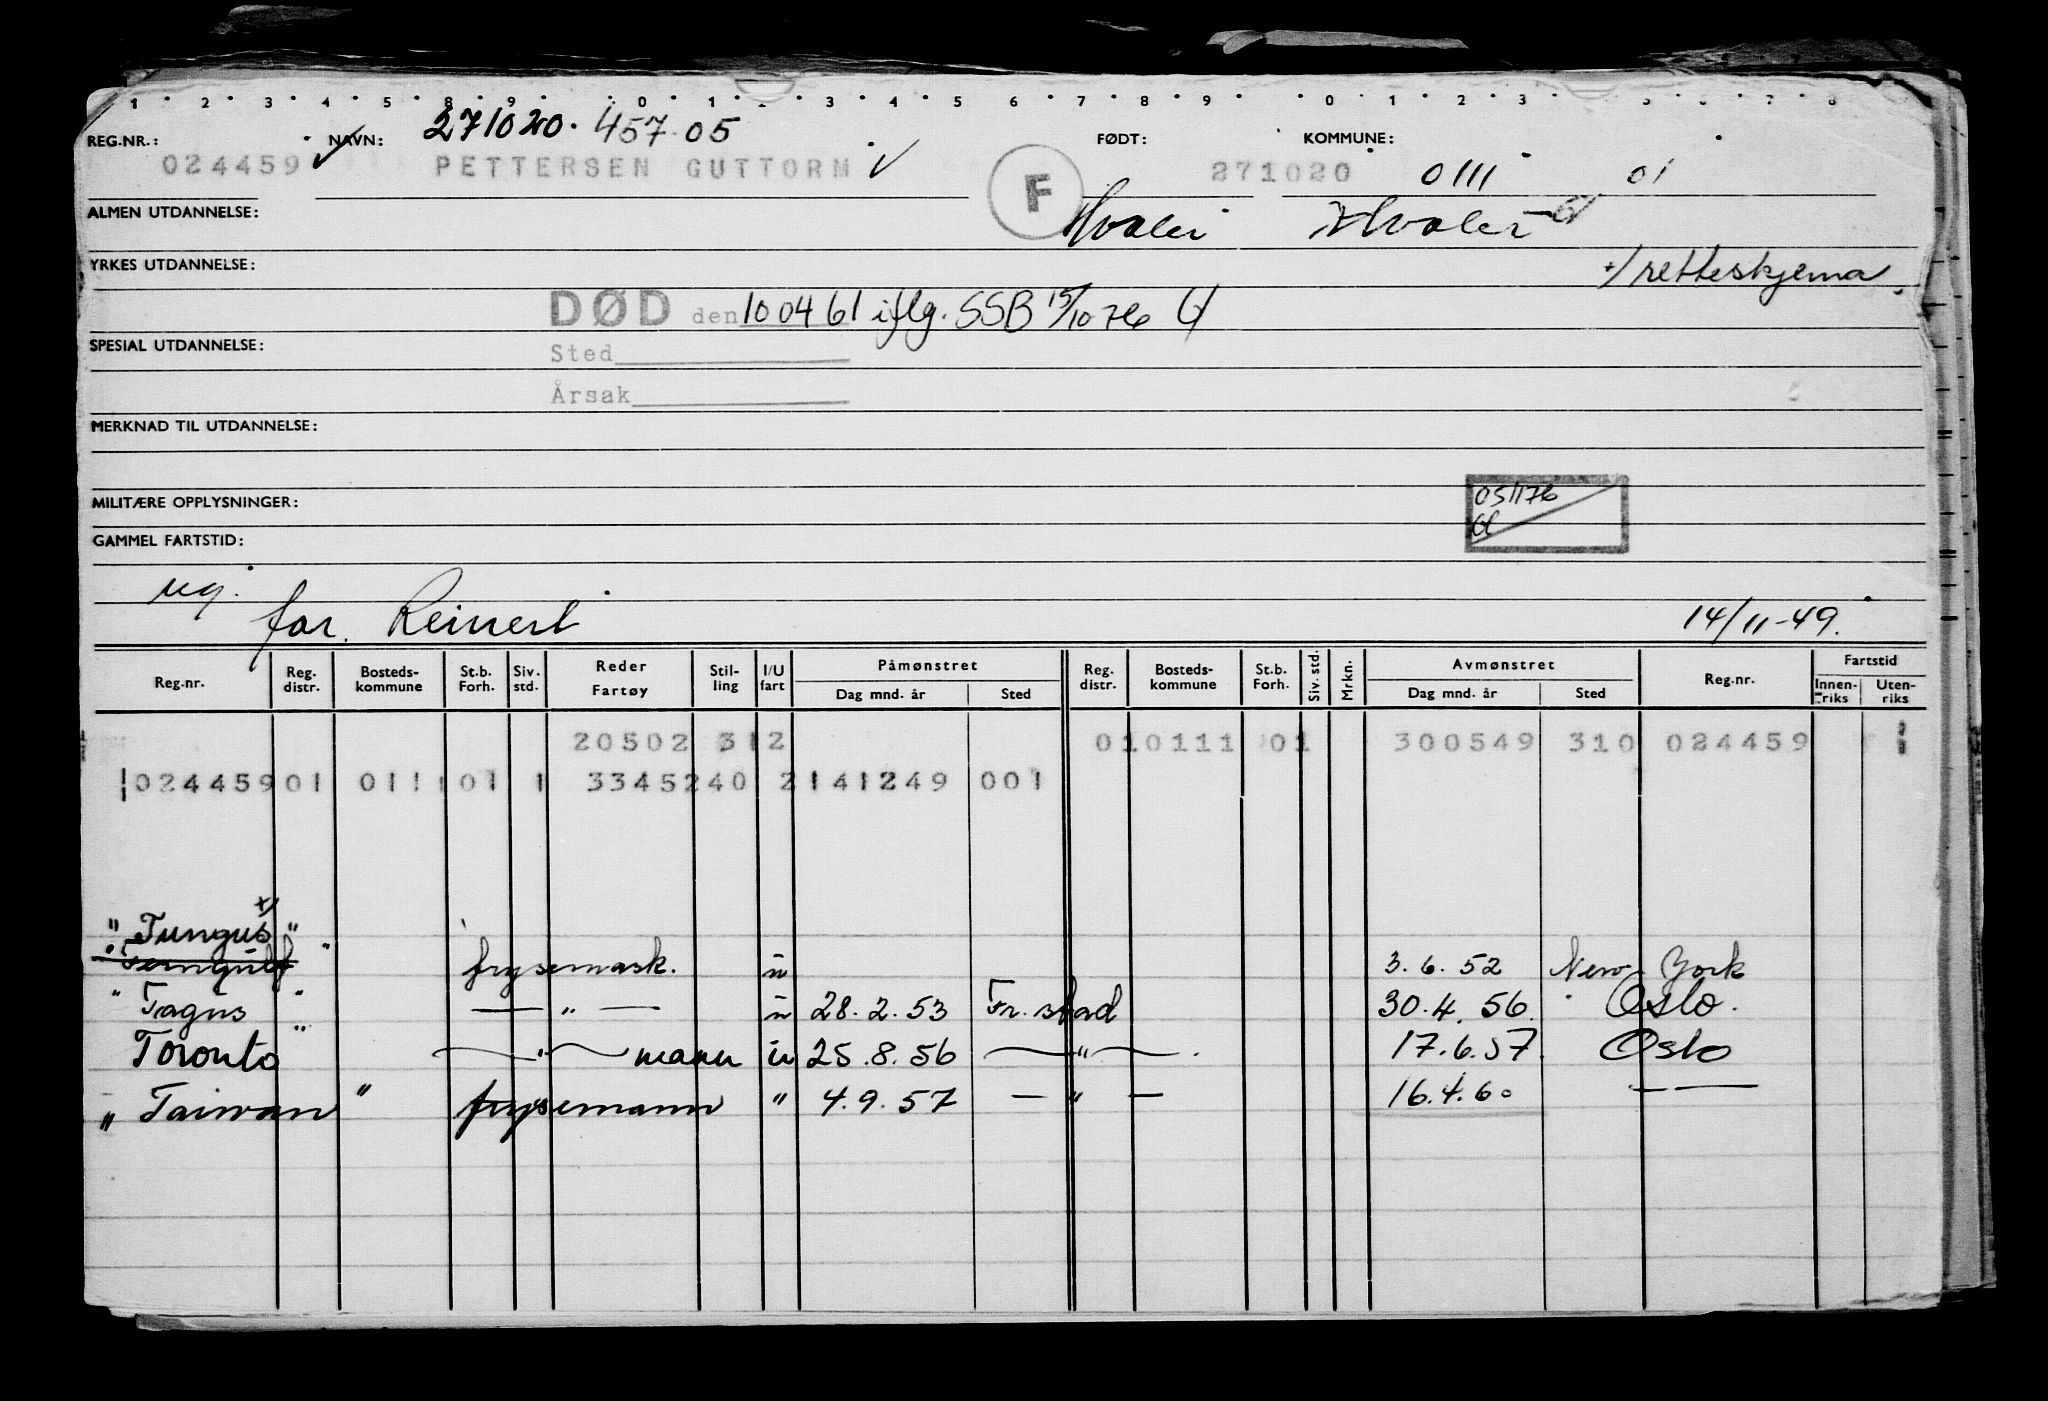 1 · 2 · 3 · 4 · 5 · 8 · 9 · · 0 · 1 · 2 · 3 · 4 · 5 · 6 · 7 · 8 · 9 · · 0 · 1 · 2 · 3 · 5 · 6 · 7 · 8
271020. 457 05
REG.NR.: NAVN: FØDT: KOMMUNE:
024459 ✓ PETTERSEN GUTTORM ✓ F 271020 0111 01
ALMEN UTDANNELSE: Hvaler Hvaler
YRKES UTDANNELSE: +/ retteskjema.
DØD den 10 04 61 iflg. SSB 15/10 76
SPESIAL UTDANNELSE:
Sted
Årsak
MERKNAD TIL UTDANNELSE:
051176
MILITÆRE OPPLYSNINGER:
GAMMEL FARTSTID:
ug.
far. Reinert 14/11-49.
Reg.nr. Reg. distr. Bosteds- kommune St.b. Forh. Siv. std. Reder Fartøy Stil- ling I/U fart Påmønstret Dag mnd. år Sted Reg. distr. Bosteds- kommune St.b. Forh. Siv. std. Mrkn. Avmønstret Dag mnd. år Sted Reg.nr. Fartstid Innen- riks Uten- riks
20502 312 010111 01 300549 310 024459
102445901 0111 01 1 3345240 2141249 001
+/
" Tungus "
" Ferngulf " frysemask. u 3. 6. 52 New York
" Tagus " — " — u 28. 2. 53 Fr. stad 30. 4. 56. Oslo.
Toronto " — " — mann u 25. 8. 56 — " — . 17. 6. 57. Oslo
" Taiwan " frysemann " 4. 9. 57 — " — 16. 4. 60 — —